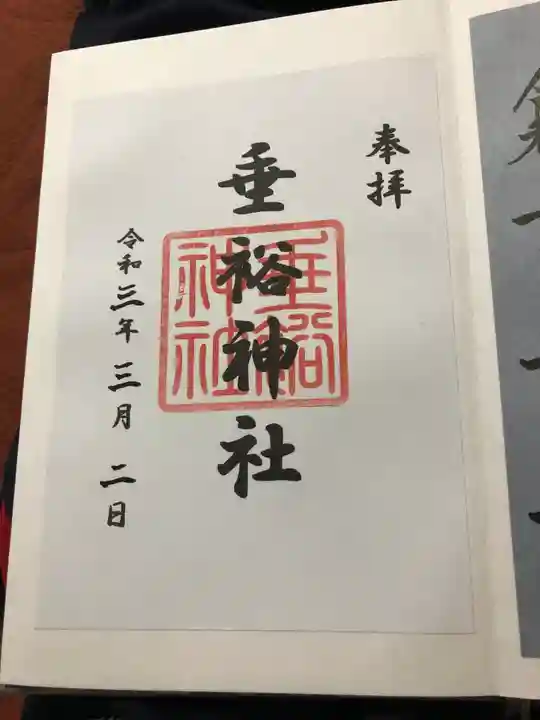 奉拝
垂裕神社
垂裕
神社
令和三年三月二日